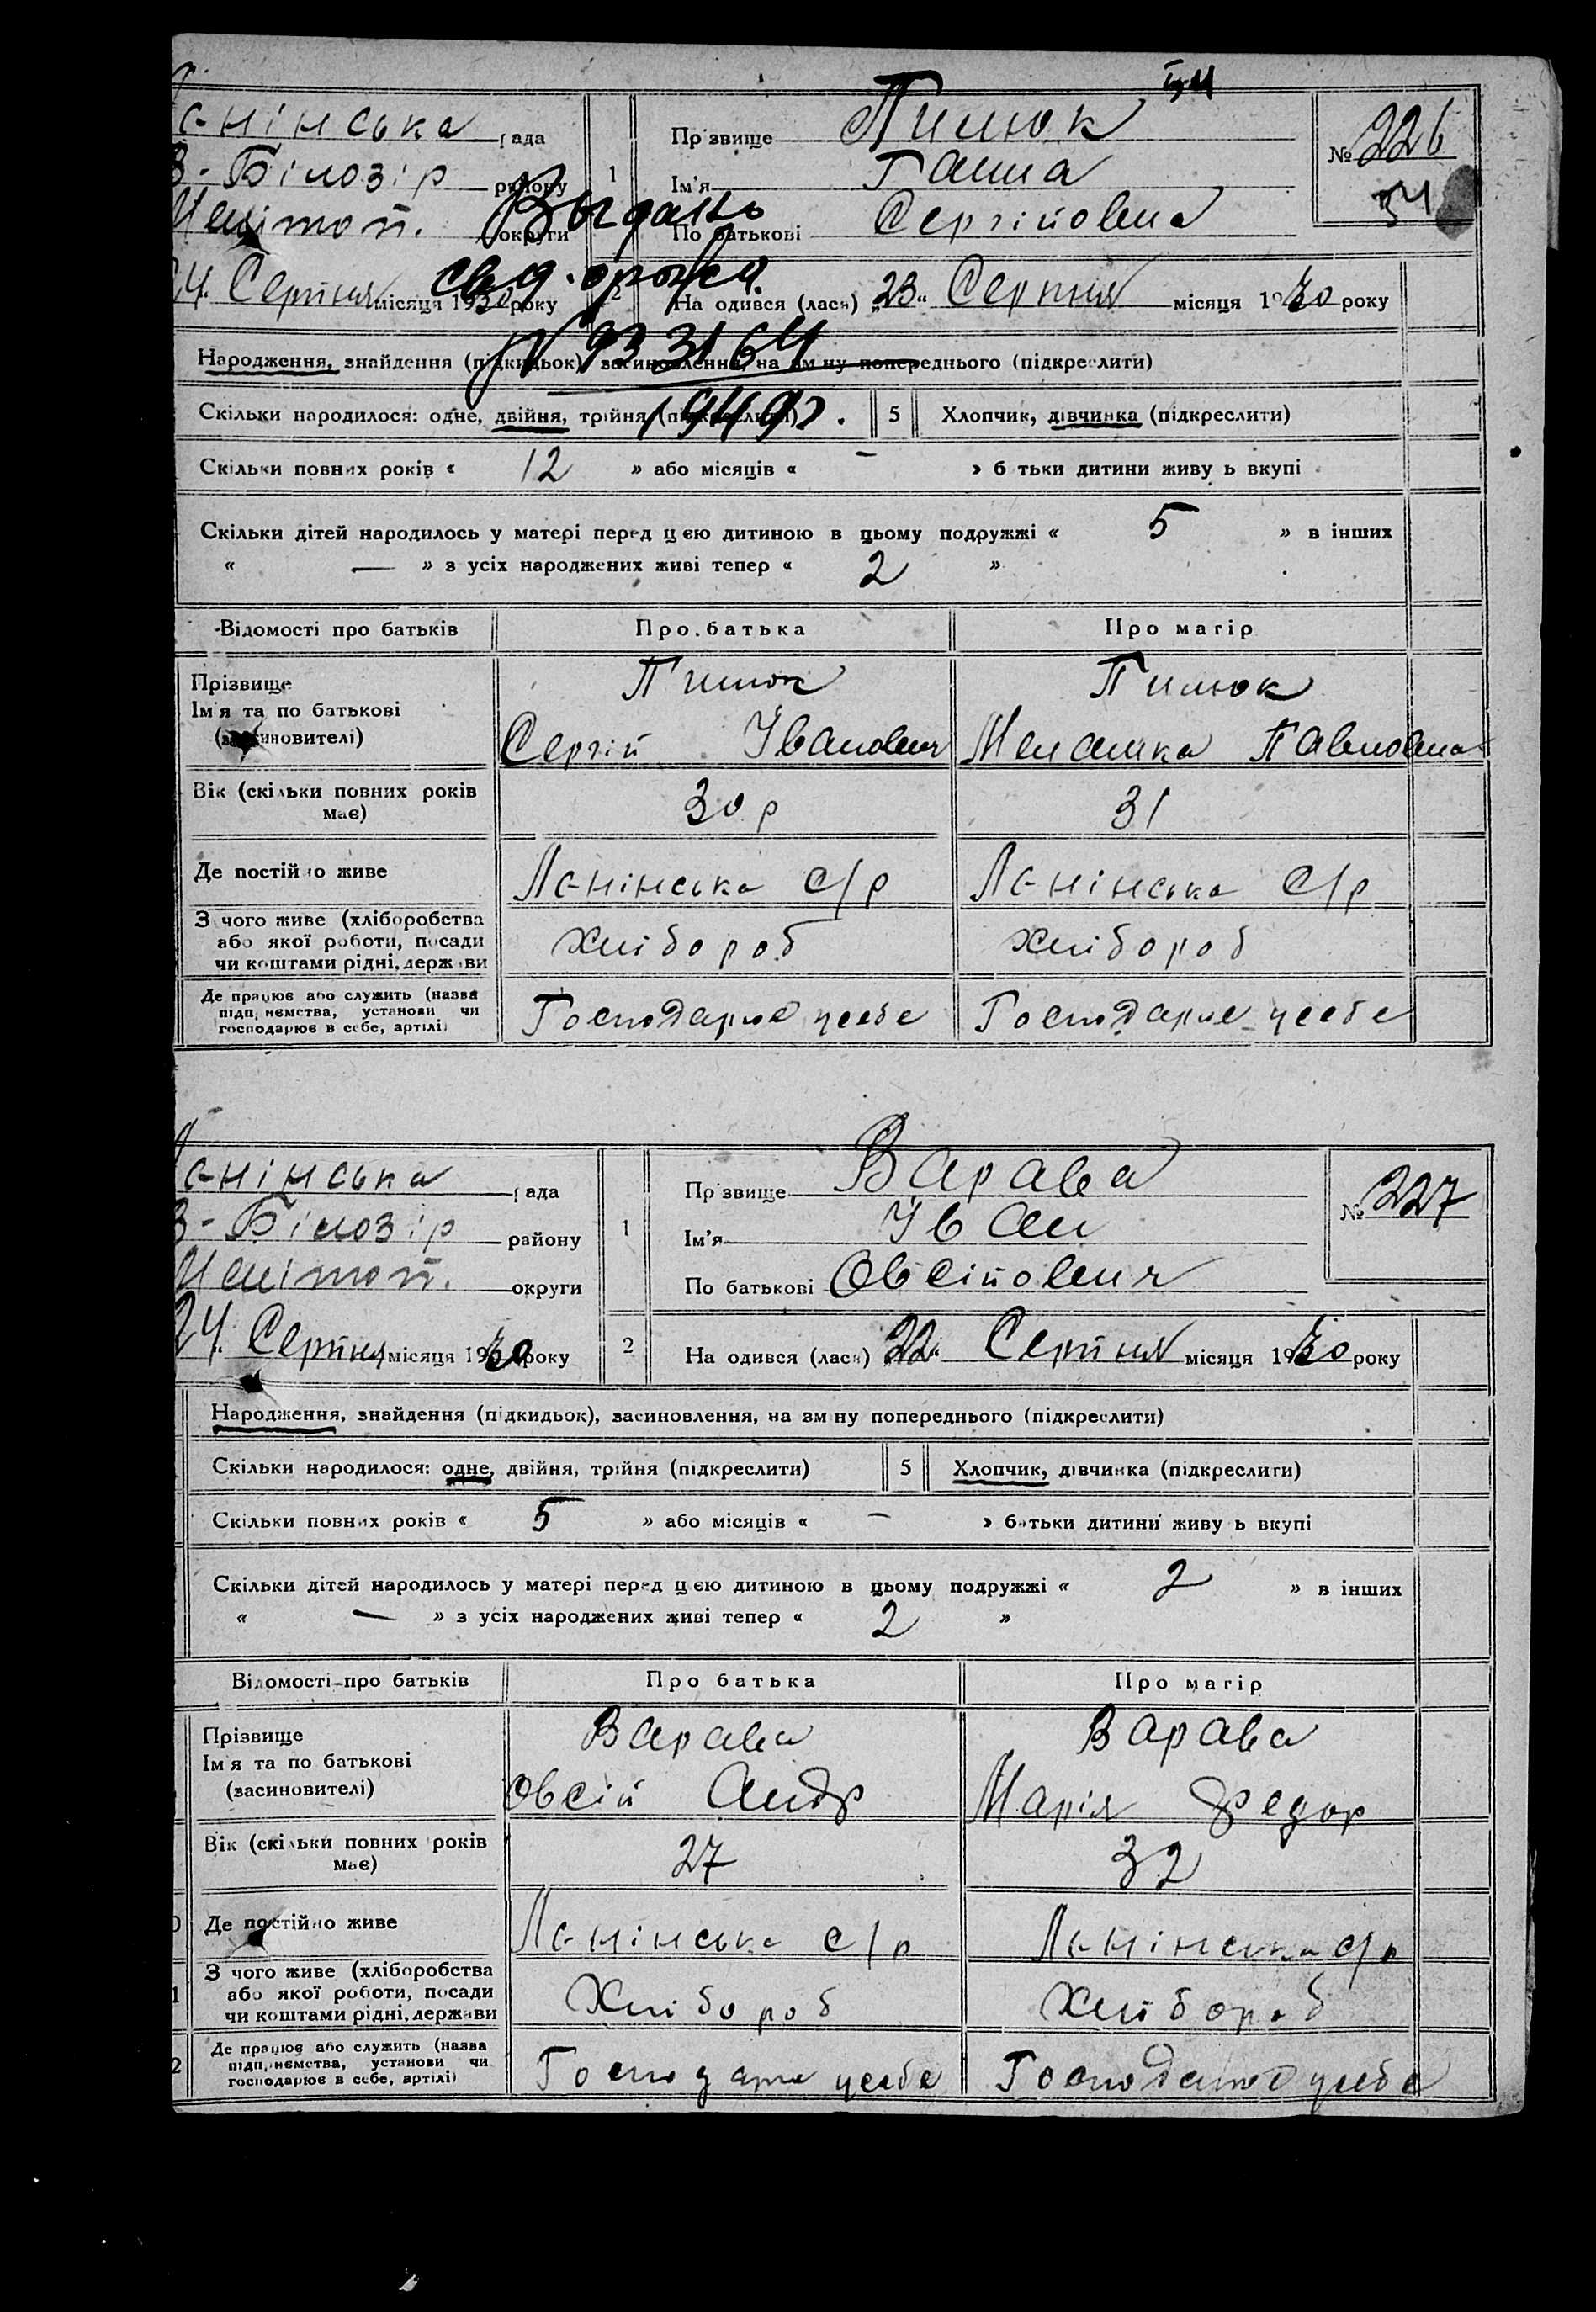 Ленінська рада
В-Білозір району
Меліттоп. округи
24. Серпня місяця 1930 року
1 Прізвище Пилюк
Ім'я Ганна
По батькові Сергійовна
№ 226
34
Выдано
свид. о рожд.
N 933164
1949 г.
2 На одився (лася) „23“ Серпня місяця 1930 року
Народження, знайдення (підкидьок), засиновлення, на зм ну попереднього (підкреслити)
Скільки народилося: одне, двійня, трійня (підкреслити) 5 Хлопчик, дівчинка (підкреслити)
Скільки повних років « 12 » або місяців « – » б тьки дитини живу ь вкупі
Скільки дітей народилось у матері перед цією дитиною в цьому подружжі « 5 » в інших
« — » з усіх народжених живі тепер « 2 »
Відомості про батьків Про батька Про матір
Прізвище Пилюк Пилюк
Ім'я та по батькові Сергій Іванович Мелашка Павловна
(засиновителі)
Вік (скільки повних років має) 30 р 31
Де постійно живе Ленінська с/р Ленінська с/р
З чого живе (хліборобства
або якої роботи, посади Хлібороб Хлібороб
чи коштами рідні, держави
Де працює або служить (назва
підприємства, установи чи Господарює у себе Господарює у себе
господарює в себе, артілі)
Ленінська рада
В-Білозір району
Меліттоп. округи
24. Серпня місяця 1930 року
1 Прізвище Варава
Ім'я Іван
По батькові Овсійович
№ 227
2 На одився (лася) „22“ Серпня місяця 1930 року
Народження, знайдення (підкидьок), засиновлення, на зм ну попереднього (підкреслити)
Скільки народилося: одне, двійня, трійня (підкреслити) 5 Хлопчик, дівчинка (підкреслити)
Скільки повних років « 5 » або місяців « – » батьки дитини живу ь вкупі
Скільки дітей народилось у матері перед цією дитиною в цьому подружжі « 2 » в інших
« — » з усіх народжених живі тепер « 2 »
Відомості про батьків Про батька Про матір
Прізвище Варава Варава
Ім'я та по батькові Овсій Андр Марія Федор
(засиновителі)
Вік (скільки повних років має) 27 32
Де постійно живе Ленінська с/р Ленінська с/р
З чого живе (хліборобства
або якої роботи, посади Хлібороб Хлібороб
чи коштами рідні, держави
Де працює або служить (назва
підприємства, установи чи Господарює у себе Господарює у себе
господарює в себе, артілі)